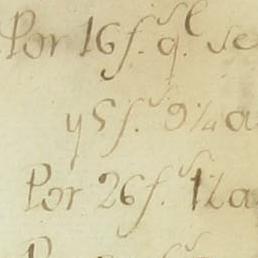 Por 16 f.s q.l se
y 5 f.s 9¼ a
Por 26 f.s 12 a